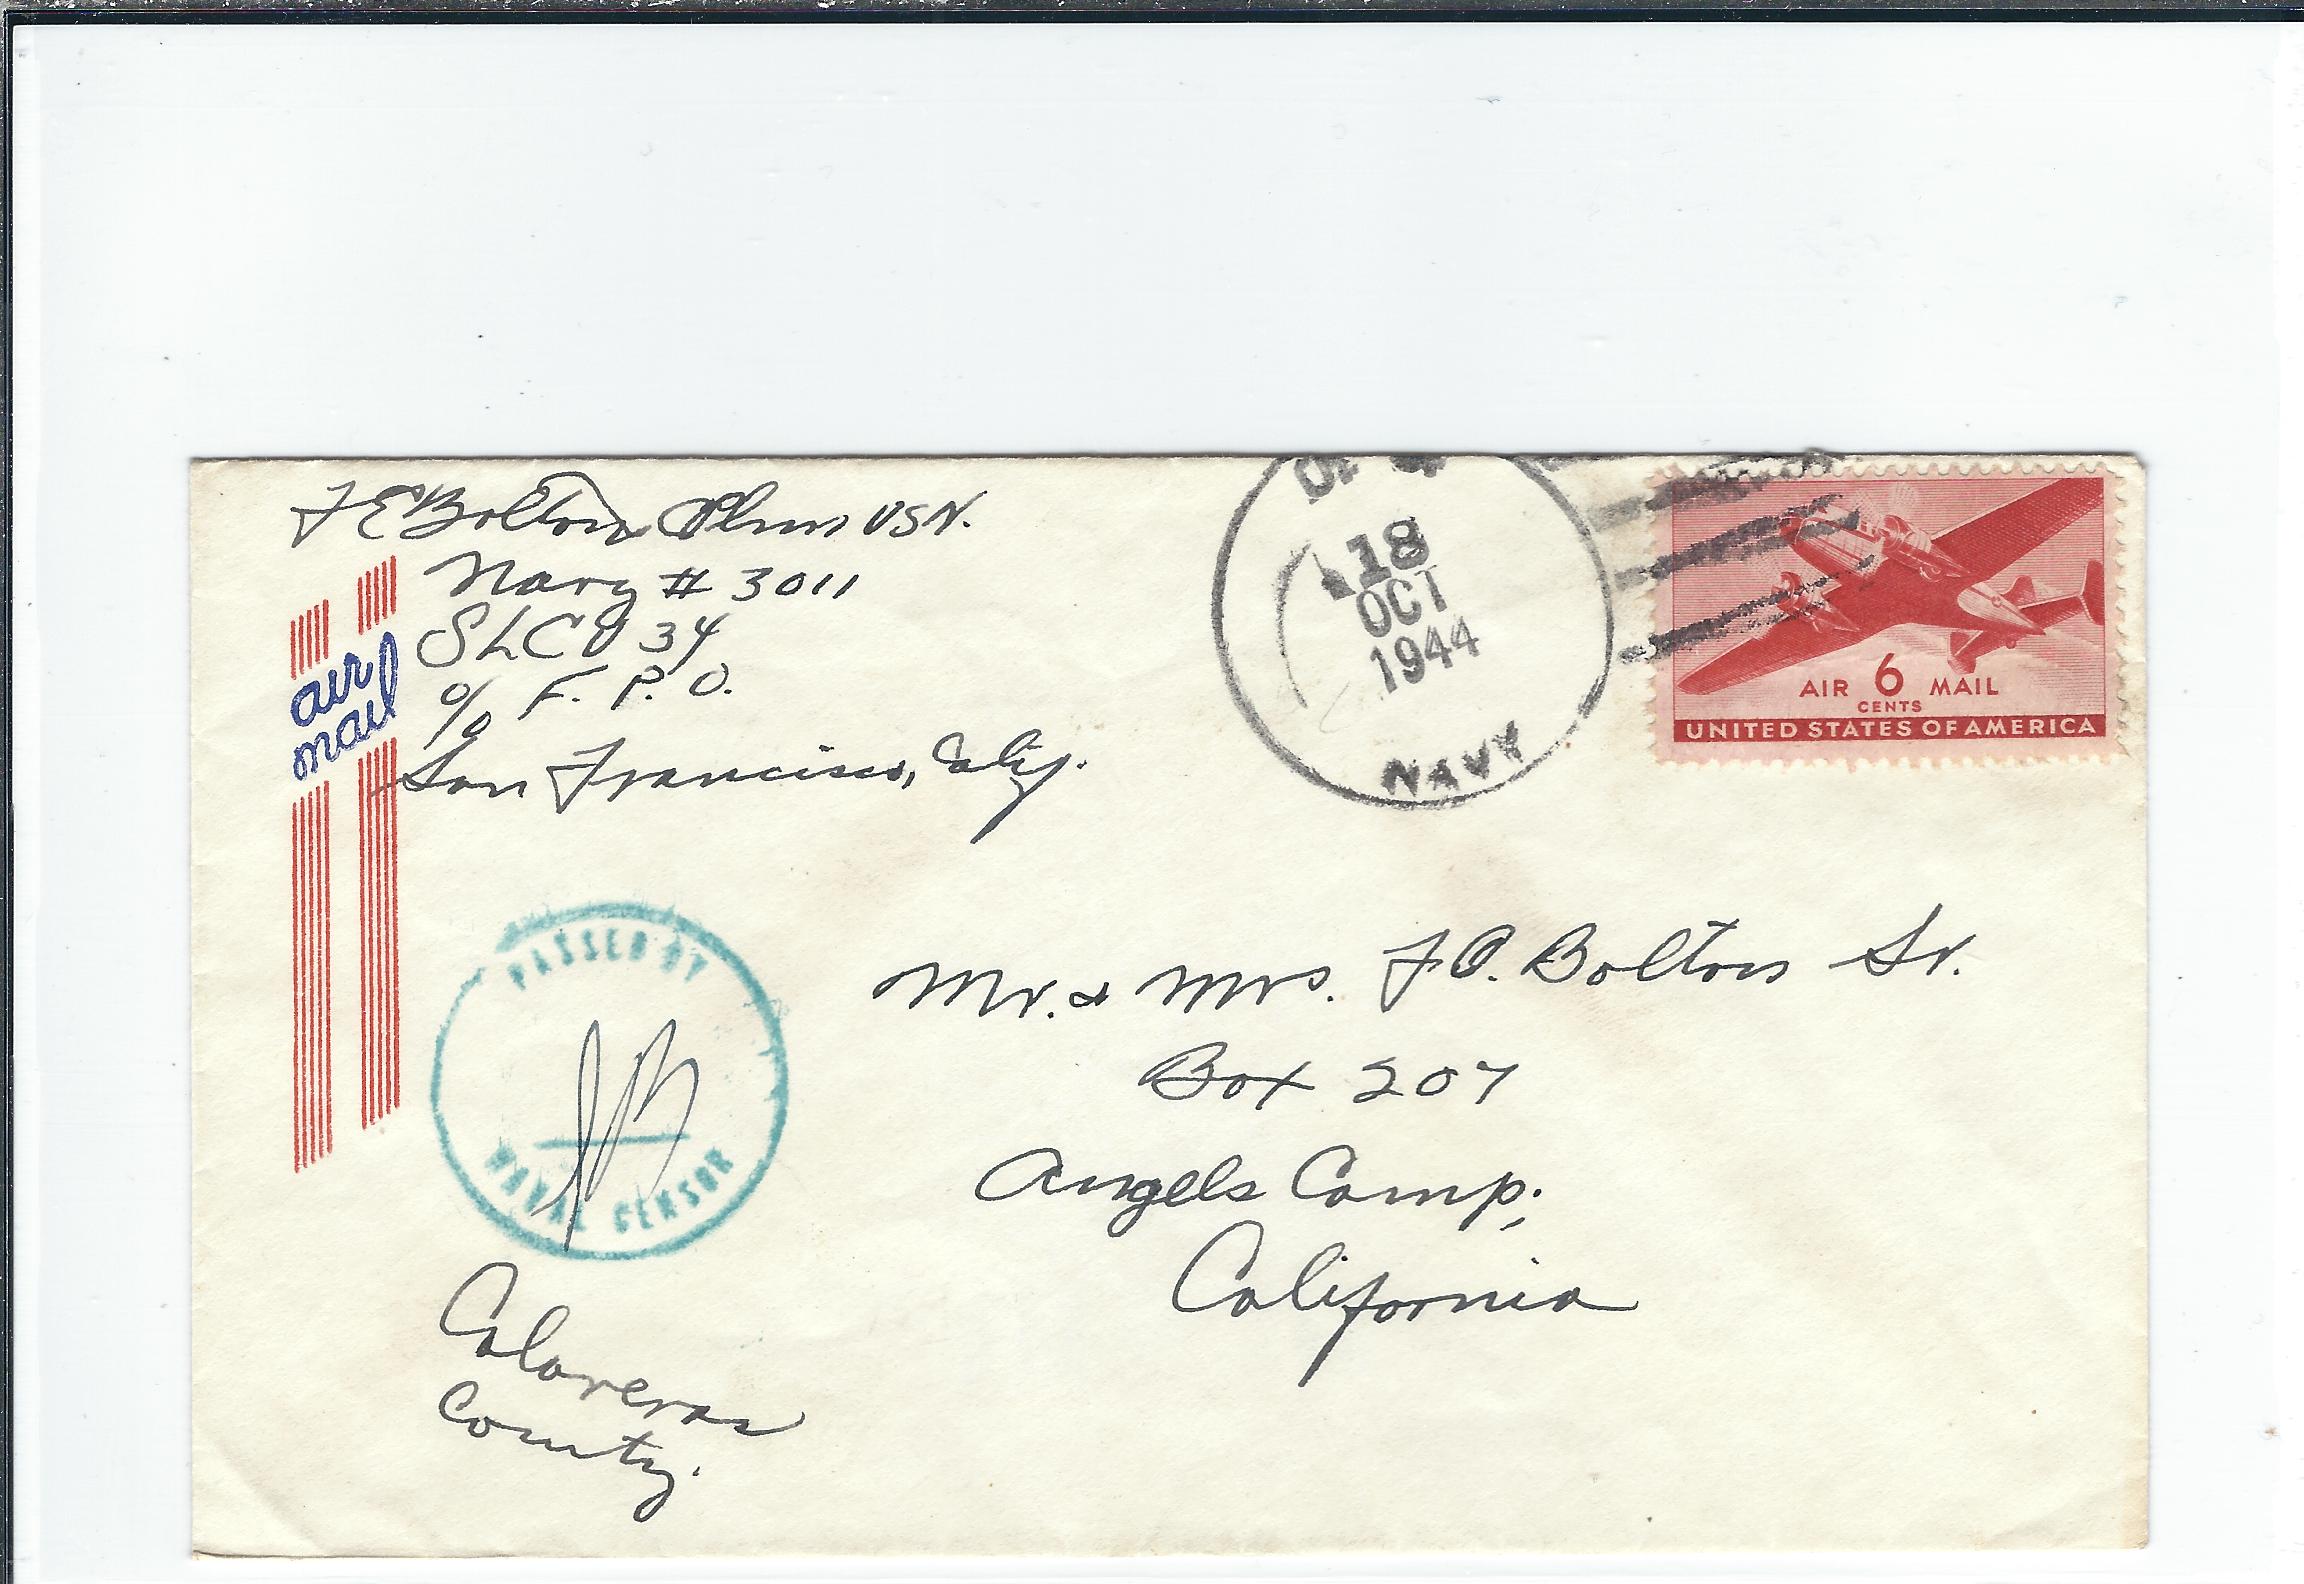 F E Bolton USN.
Navy # 3011
SLCU 34
c/o F. P. O.
San Francisco, Calif.
air
mail
18
OCT
1944
NAVY
AIR 6 MAIL
CENTS
UNITED STATES OF AMERICA
PASSED BY
NAVAL CENSOR
Mr. & Mrs. Bolton Sr.
Box 207
Angels Camp,
California
Calaveras
County.